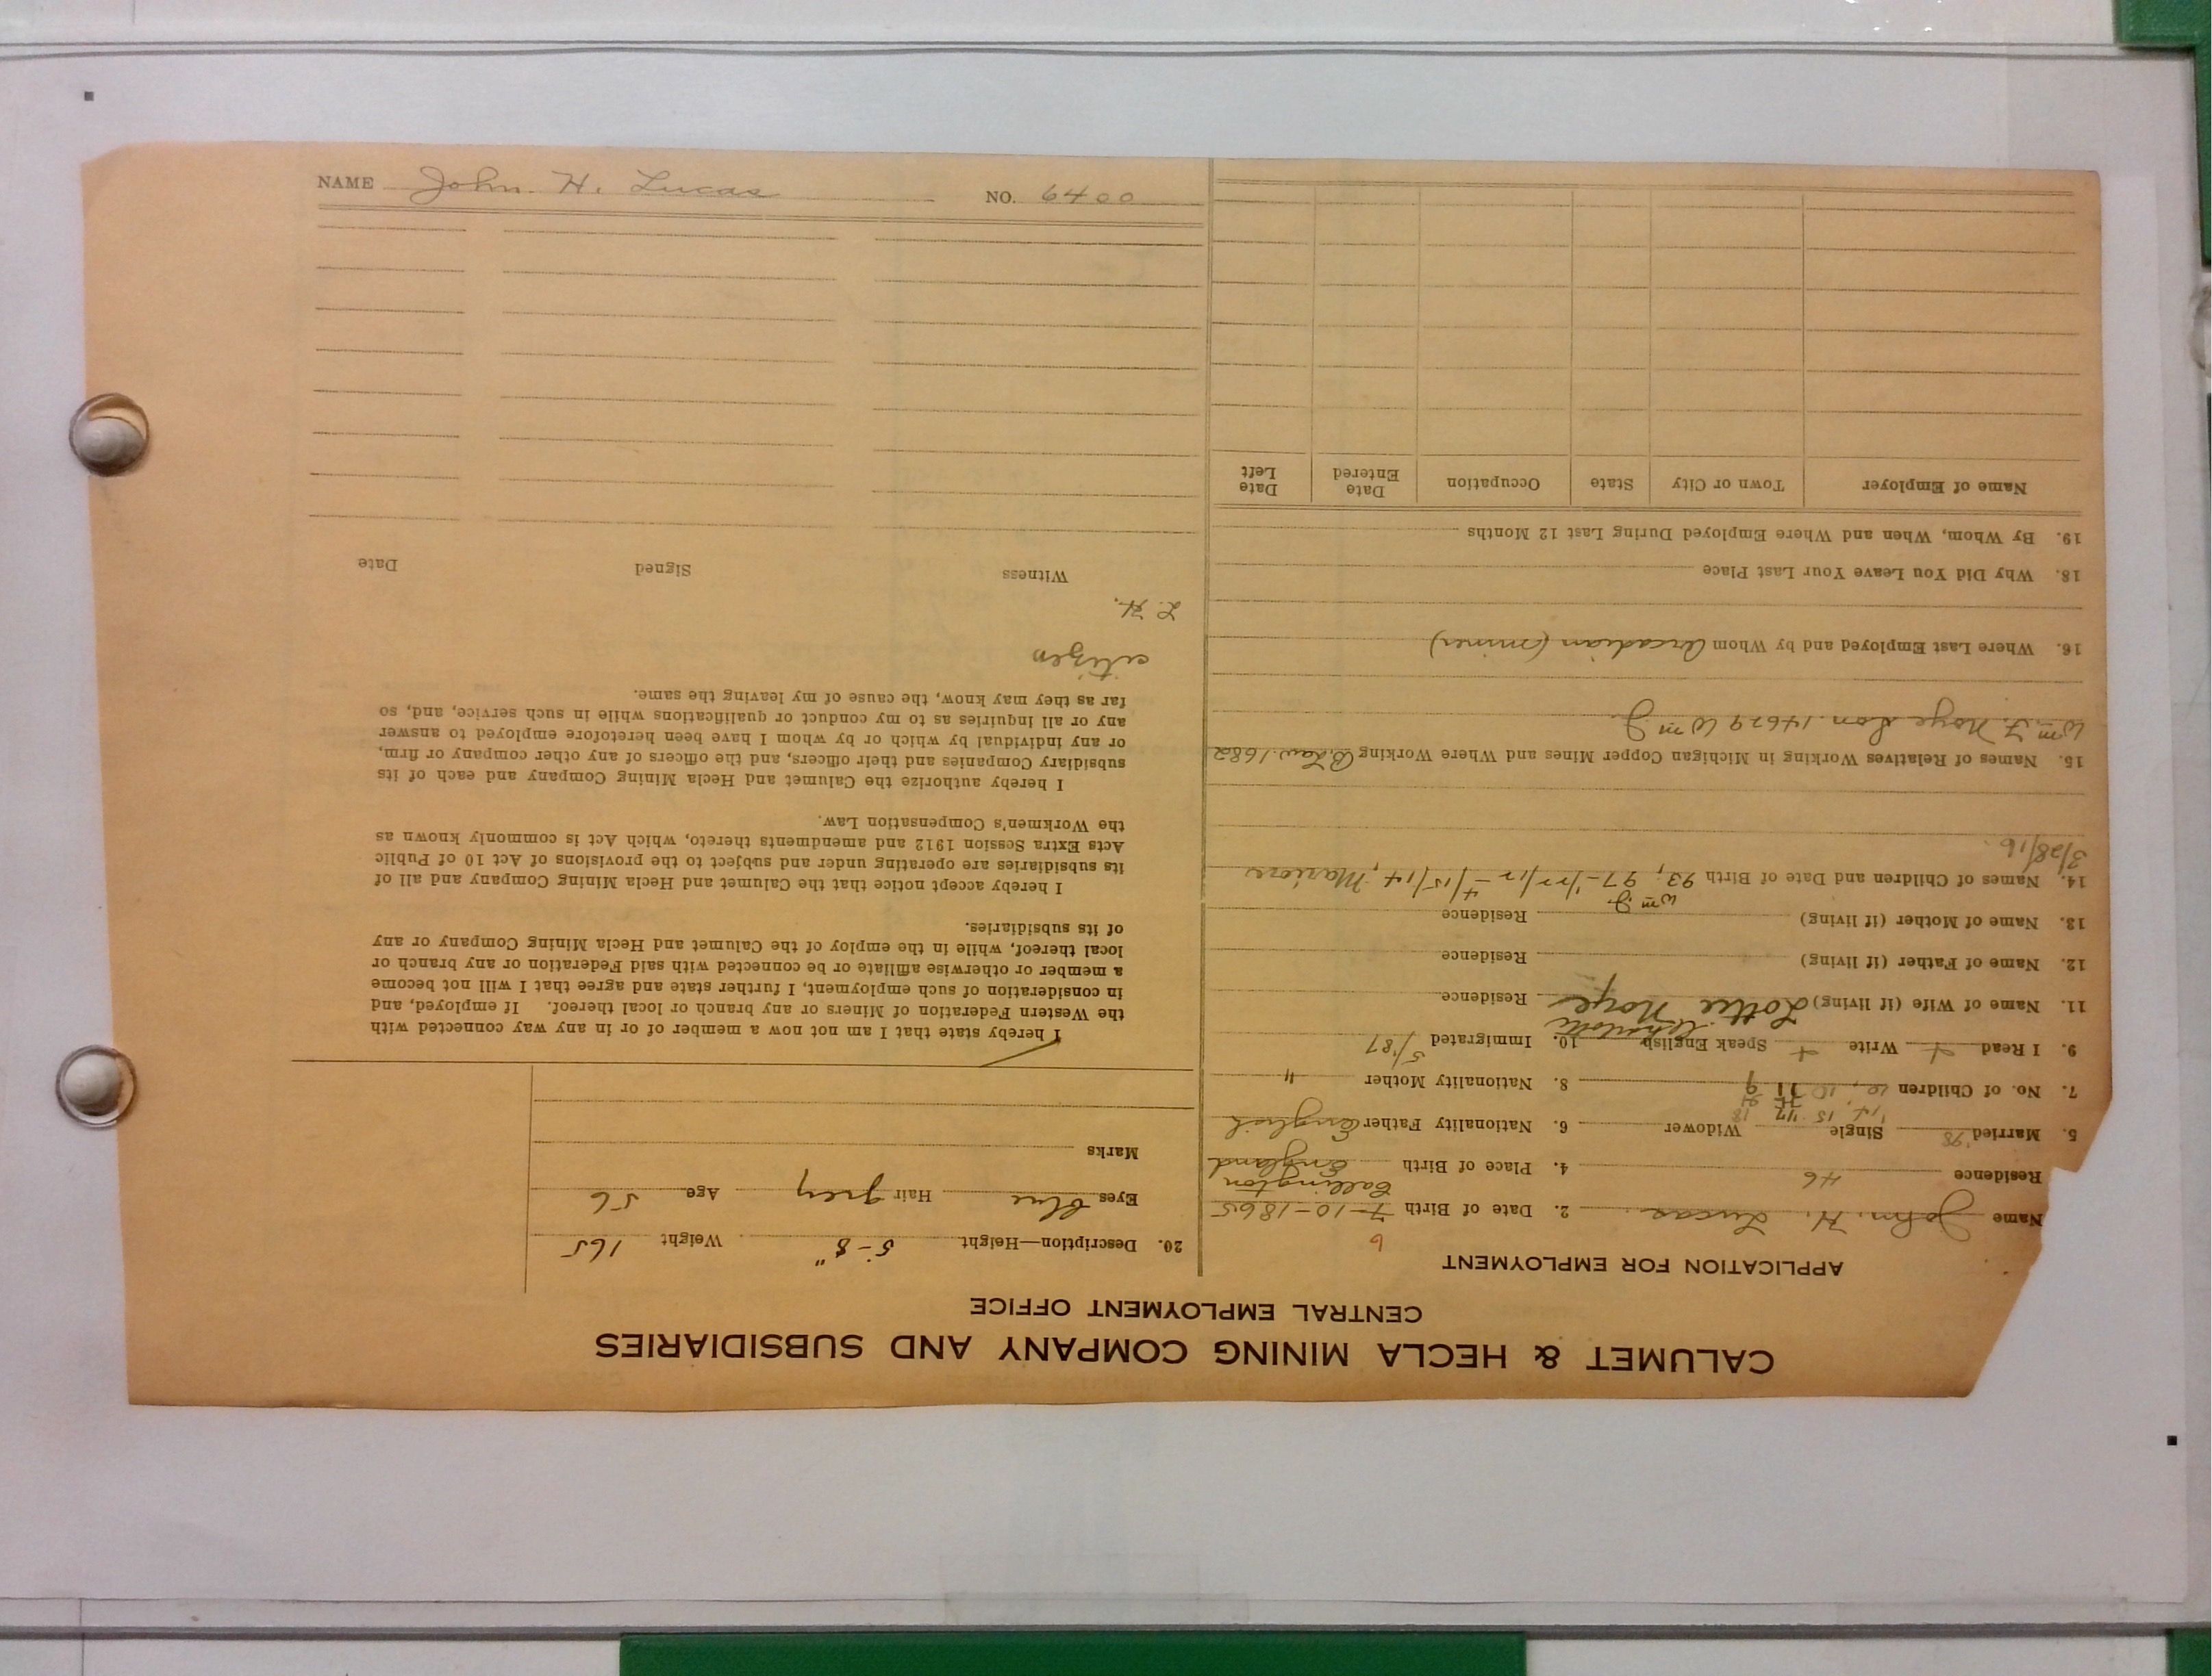 CALUMET & HECLA MINING COMPANY AND SUBSIDIARIES
CENTRAL EMPLOYMENT OFFICE
APPLICATION FOR EMPLOYMENT
6
Name John. H. Lucas. 2. Date of Birth 7-10-1865
Callington
Residence 46 4. Place of Birth England
5. Married '98 Single Widower 6. Nationality Father English
'14 15 '17 18
7. No. of Children 8. Nationality Mother "
9. I Read + Write + Speak English 10. Immigrated 5/'87
Charlotte
11. Name of Wife (if living) Lottie Noye Residence
12. Name of Father (if living) Residence
13. Name of Mother (if living) Residence
Wm J.
14. Names of Children and Date of Birth 93; 97-1/22/12-4/15/14, Marion
3/28/16.
15. Names of Relatives Working in Michigan Copper Mines and Where Working B. Law. 1682
Wm. F. Noye Son. 14629 Wm J.
16. Where Last Employed and by Whom Arcadian (miner)
18. Why Did You Leave Your Last Place
19. By Whom, When and Where Employed During Last 12 Months
Name of Employer Town or City State Occupation Date Entered Date Left
20. Description—Height 5-8" Weight 165
Eyes blue Hair grey Age 56
Marks
I hereby state that I am not now a member of or in any way connected with
the Western Federation of Miners or any branch or local thereof. If employed, and
in consideration of such employment, I further state and agree that I will not become
a member or otherwise affiliate or be connected with said Federation or any branch or
local thereof, while in the employ of the Calumet and Hecla Mining Company or any
of its subsidiaries.
I hereby accept notice that the Calumet and Hecla Mining Company and all of
its subsidiaries are operating under and subject to the provisions of Act 10 of Public
Acts Extra Session 1912 and amendments thereto, which Act is commonly known as
the Workmen's Compensation Law.
I hereby authorize the Calumet and Hecla Mining Company and each of its
subsidiary Companies and their officers, and the officers of any other company or firm,
or any individual by which or by whom I have been heretofore employed to answer
any or all inquiries as to my conduct or qualifications while in such service, and, so
far as they may know, the cause of my leaving the same.
citizen
L. H.
Witness Signed Date
NAME John. H. Lucas NO. 6400